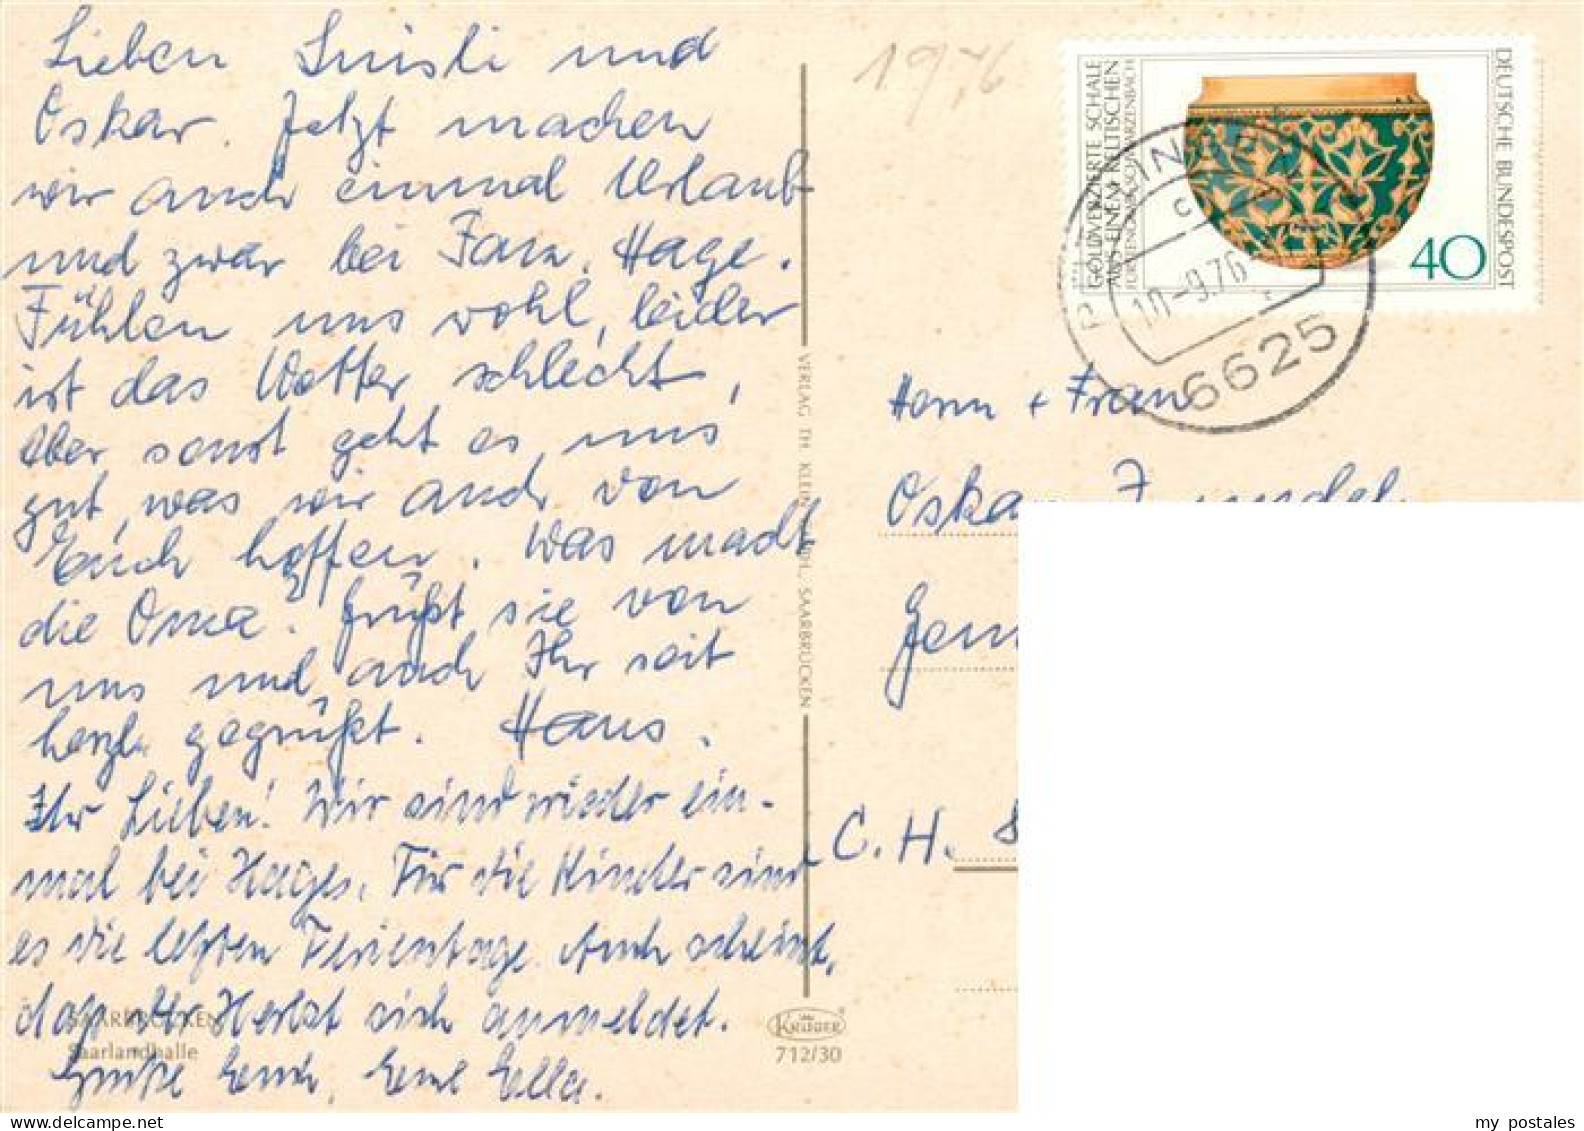 Lieben Luisli und
Oskar. Jetzt machen
wir auch einmal Urlaub
und zwar bei Fam. Hage.
Fühlen uns wohl, leider
ist das Wetter schlecht,
aber sonst geht es uns
gut, was wir auch von
Euch hoffen. Was macht
die Oma? Grüßt sie von
uns und auch Ihr seit
herzl. gegrüßt. Hans.
Ihr Lieben! Wir sind wieder ein-
mal bei Hages. Für die Kinder sind
es die letzten Ferientage. Auch scheint,
daß der Herbst sich anmeldet.
Grüße Euch, Eure Ella.
SAARBRÜCKEN
Saarlandhalle
VERLAG TH. KLEIN, SAARBRÜCKEN
KRÜGER
712/30
1976
GOLDVERZIERTE SCHALE
AUS EINEM KELTISCHEN
FÜRSTENGRAB SCHWARZENBACH
DEUTSCHE BUNDESPOST
40
10.-9.76
6625
Herrn + Frau
Oskar
C.H.
my postales